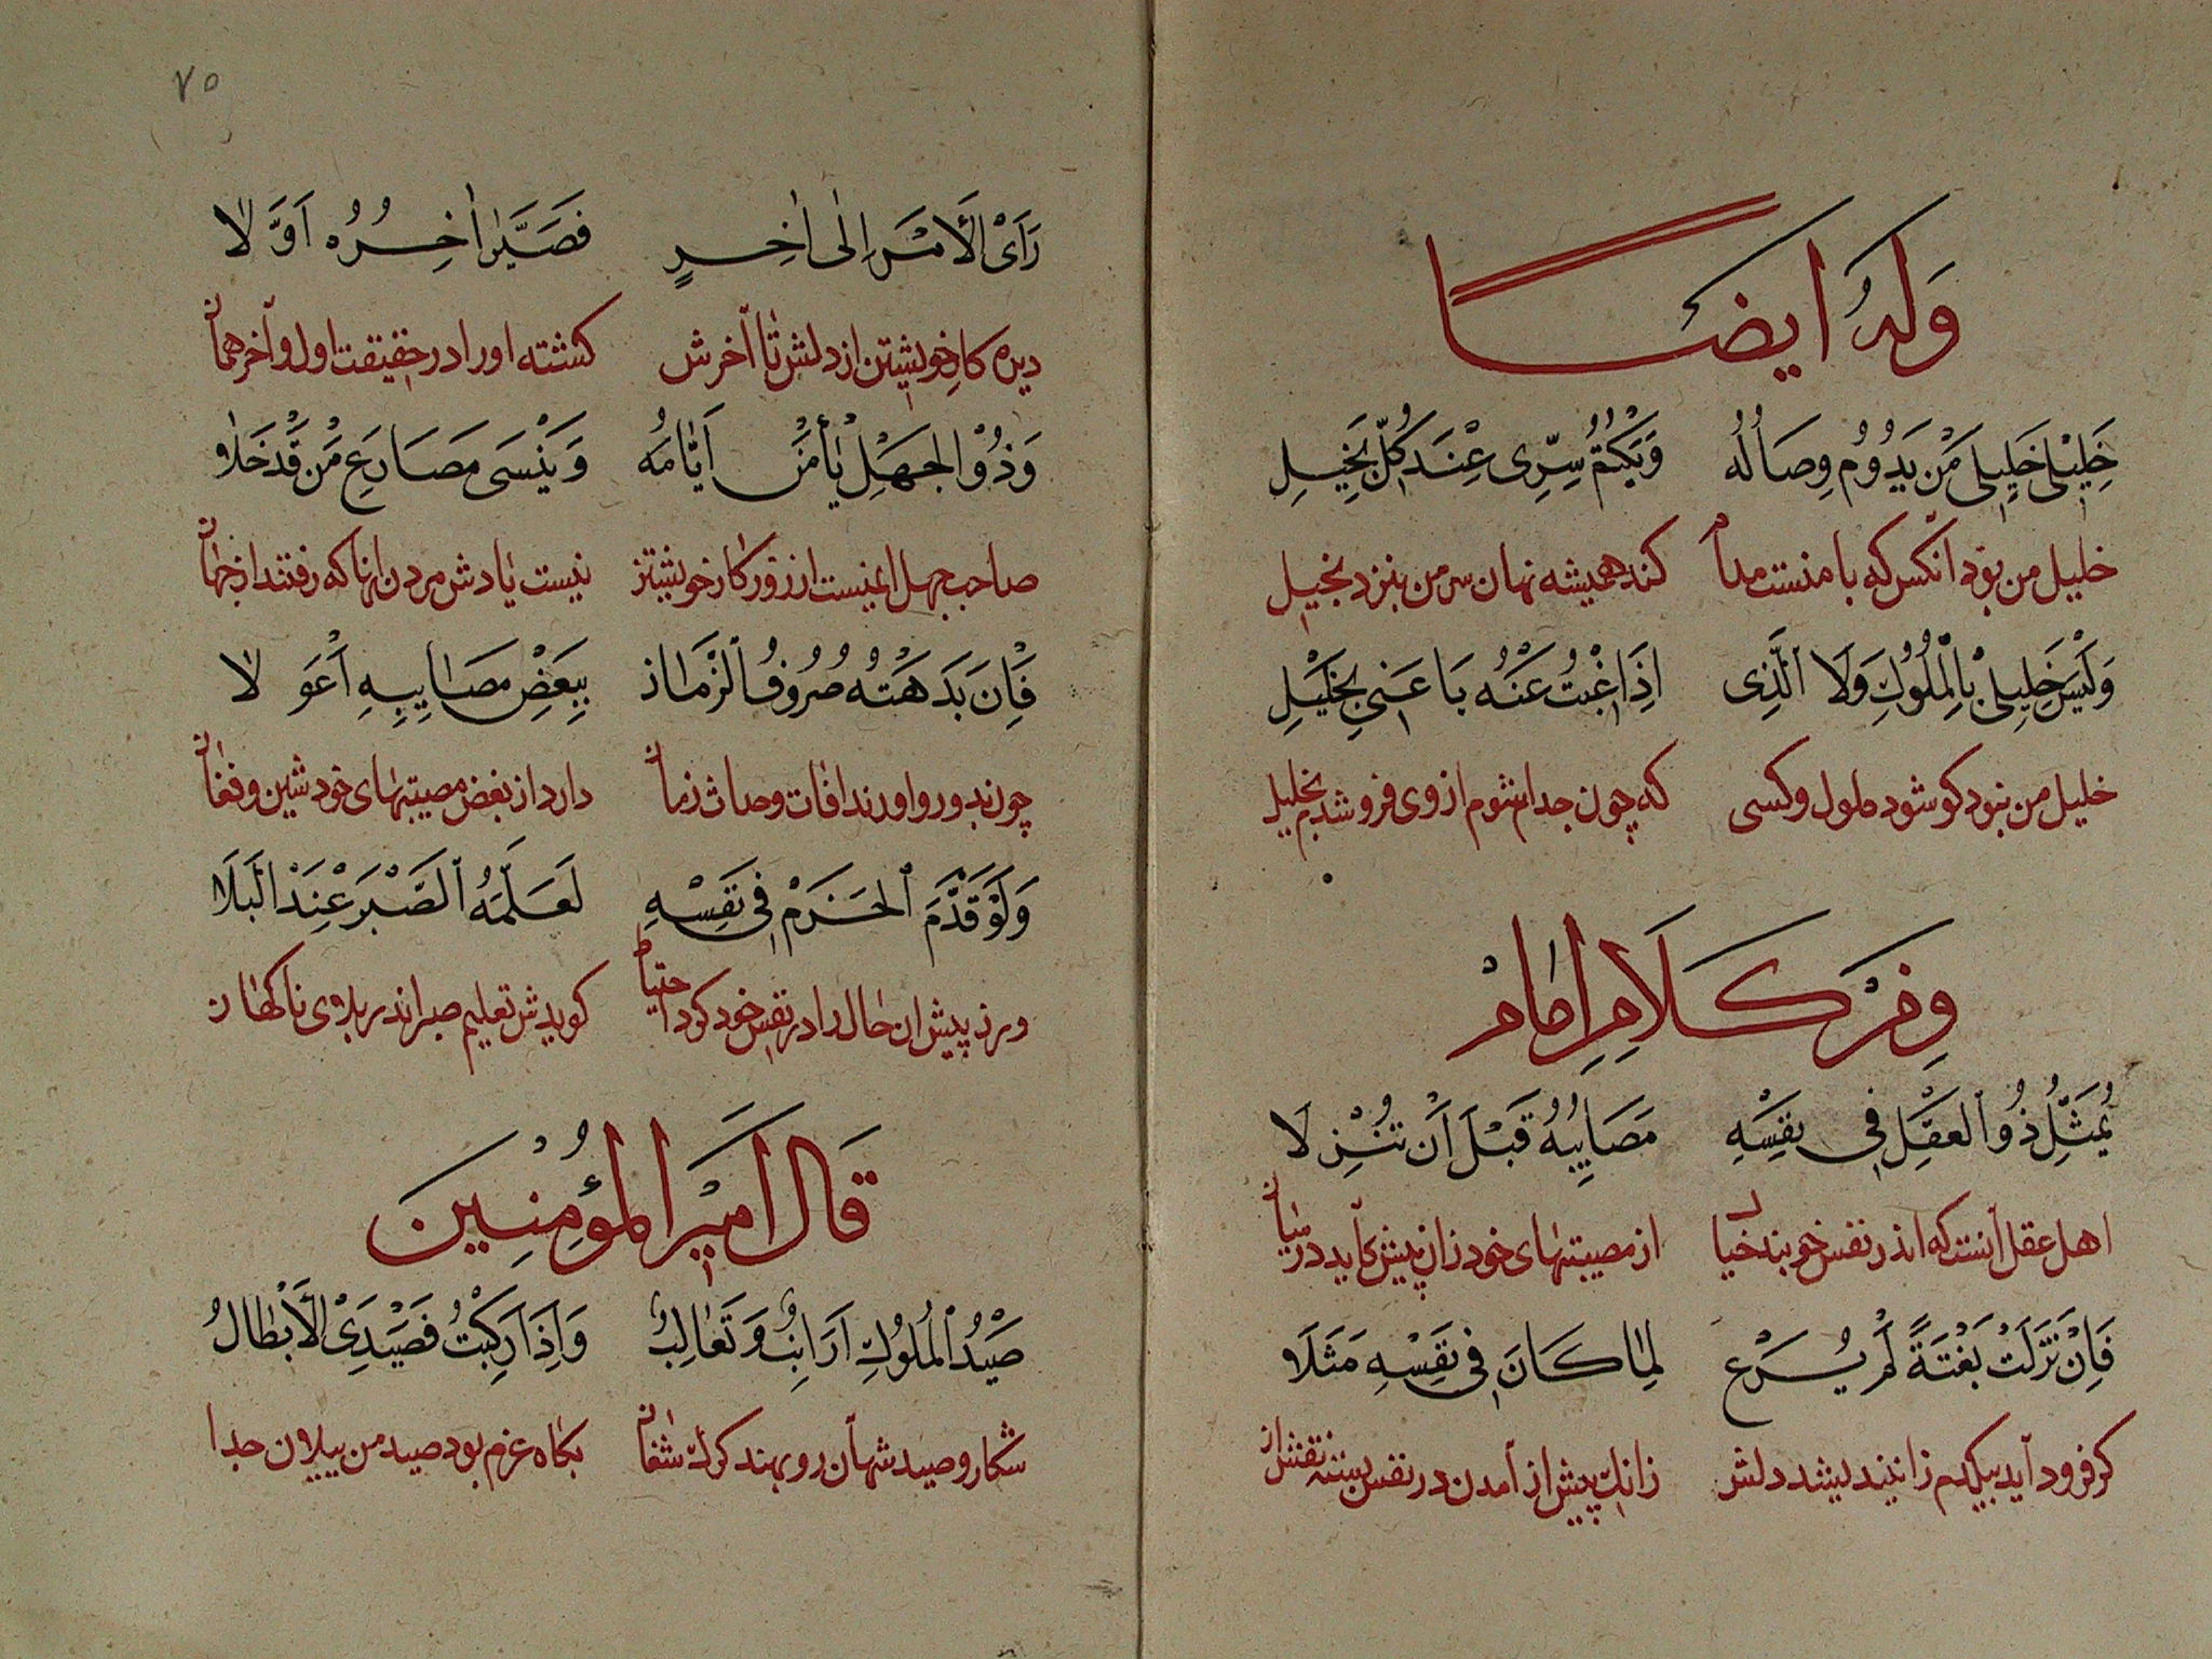 وَلَهُ اَيضًا
خَلِيْلِى خَلِيلِى مَنْ يَدُوْمُ وِصَالُهُ وَيَكْتُمُ سِرِّى عِنْدَ كُلِّ بَخِيلِ
خليل من بود آنکس که با منست مدام کند همیشه نهان سر من بنزد بخیل
وَلَيْسَ خَلِيلِىْ بِالْمَلُوْلِ وَلَا الَّذِى اِذَا غِبْتُ عَنْهُ بَاعَنِى بِخَلِيْلِ
خلیل من نبود کو شود ملول و کسی که چون جدا شوم از وی فروشدم بخلیل
وَمِنْ كَلَامِ اِمَامْ
يُمَثِّلُ ذُو العَقْلِ فِى نفْسِهِ مَصَايِبَهُ قَبْلَ اَنْ تَنْزِلَا
اهل عقل آنست که اندر نفس خو بندد خیال از مصیبتهای خود زان پیش کاید در میان
فَاِنْ نَزَلَتْ بَغْتَةً لَمْ يُرَعْ لِمَا كَانَ فِى نَفْسِهِ مَثَلَا
کر فرود آید بیکدم زان نیندیشد دلش زانک پیش از آمدن در نفس بسته نقش ان
٧٥
رَاَىْ الْاَمْرَ اِلى اٰخِرٍ فَصَيَّرَ اٰخِرُهُ اَوَّلَا
دیده کار خویشتن از دلش تا آخرش کشته او را در حقیقت اول و آخر همان
وَذُوْ الْجَهْلِ يَأْمَنْ اَيَّامَهُ وَيَنْسَى مَصَارِعَ مَنْ قَدْ خَلَا
صاحب جهل ایمنست از زور کار خویشتن نیست یادش مردن آنها که رفتند از جهان
فَاِنْ بَدَهَتْهُ صُرُوفُ الزَّمَان بِبَعْضِ مَصَايِبِهِ اَعْوَلَا
چون بدو رو اورند افات وحداث زمان دارد از بعض مصیبتهای خود شین و فغان
وَلَوْ قَدَّمَ الْحَزْمَ فِى نَفْسِهِ لَعَلَّمَهُ الصَّبْرَ عِنْدَ الْبَلَا
ورنه پیش ان حال را در نفس خود کود احتیاط کویدش تعلیم صبر اندر بلای ناکهان
قَالَ اَمِيْرَ الْمُؤمِنِينَ
صَيْدُ الْمُلُوكِ اَرَانِبٌ وَثَعَالِبٌ وَاِذَا رَكِبْتُ فَصَيْدِىَ الْاَبْطَالُ
شکار و صید شهان روبهند کرک شغال بکاه عزم بود صید من ییلان جدا